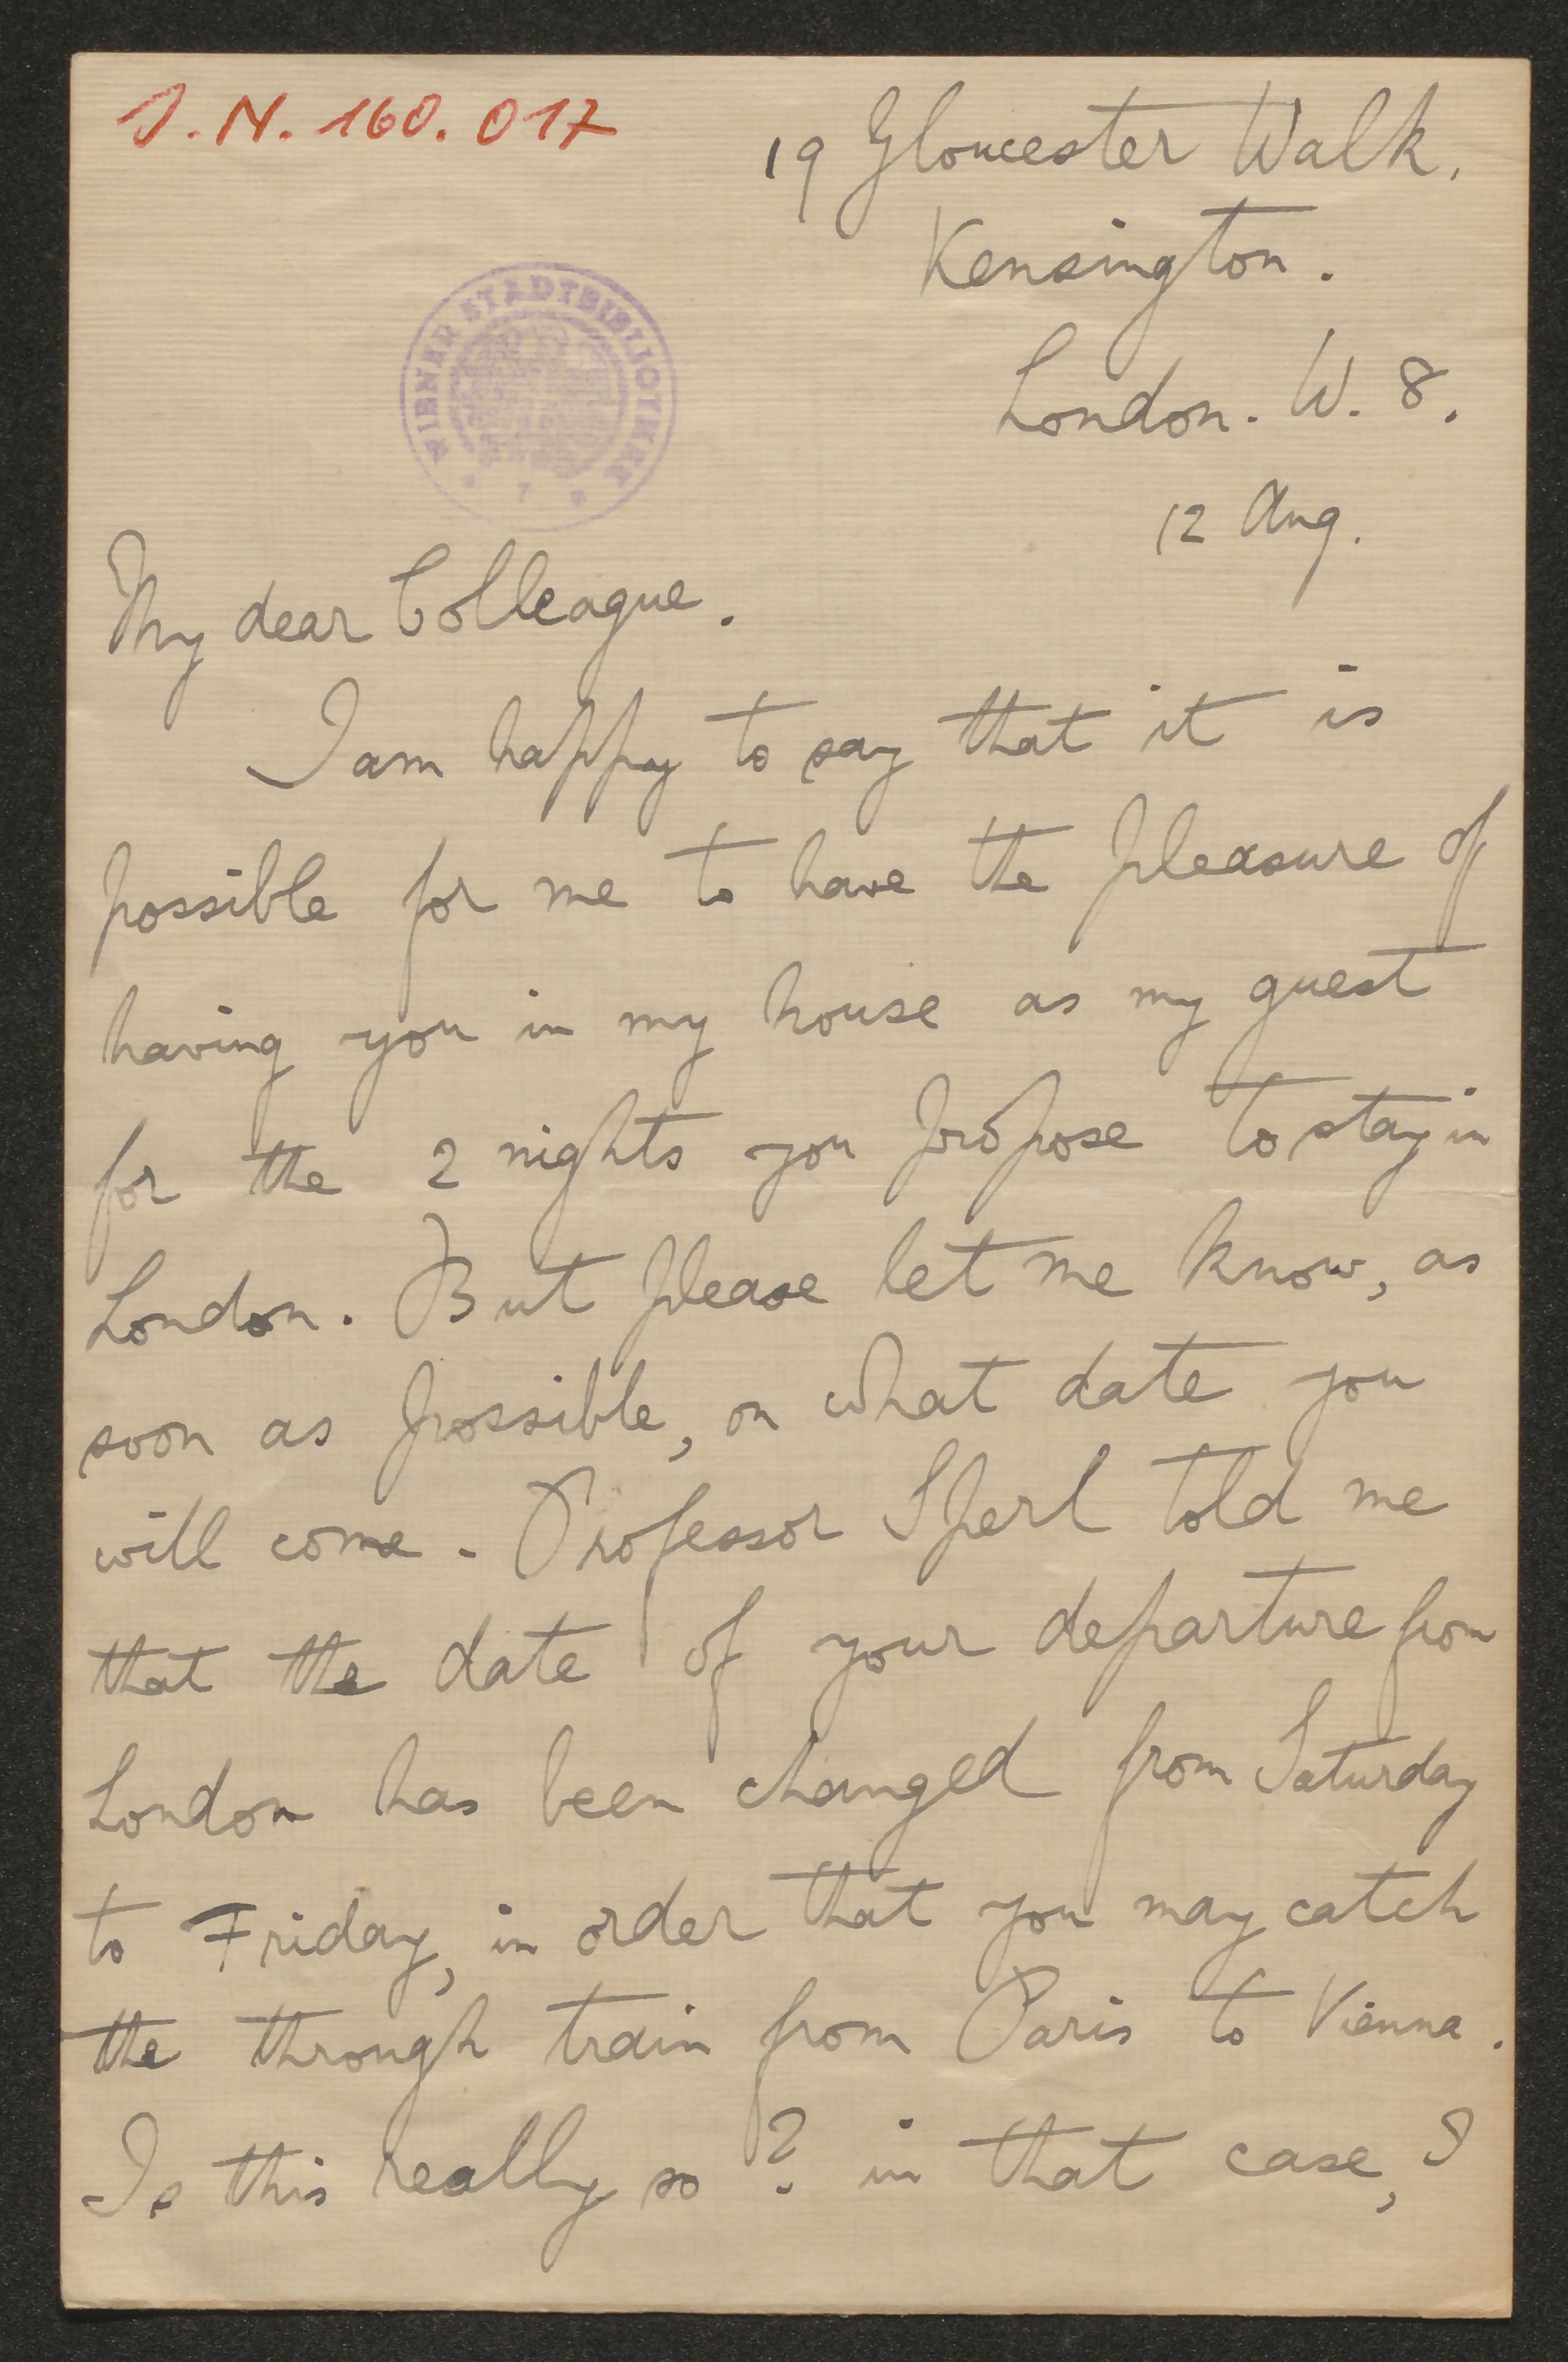 J.N. 160.017
19 Gloucester Walk.
Kensington.
London. W. 8.
WIENER STADTBIBLIOTHEK
* 7 *
12 Aug.
My dear Colleague.
I am happy to say that it is
possible for me to have the pleasure of
having you in my house as my guest
for the 2 nights you propose to stay in
London. But please let me know, as
soon as possible, on what date you
will come. Professor Sperl told me
that the date of your departure from
London has been changed from Saturday
to Friday, in order that you may catch
the through train from Paris to Vienna.
Is this really so? in that case, I